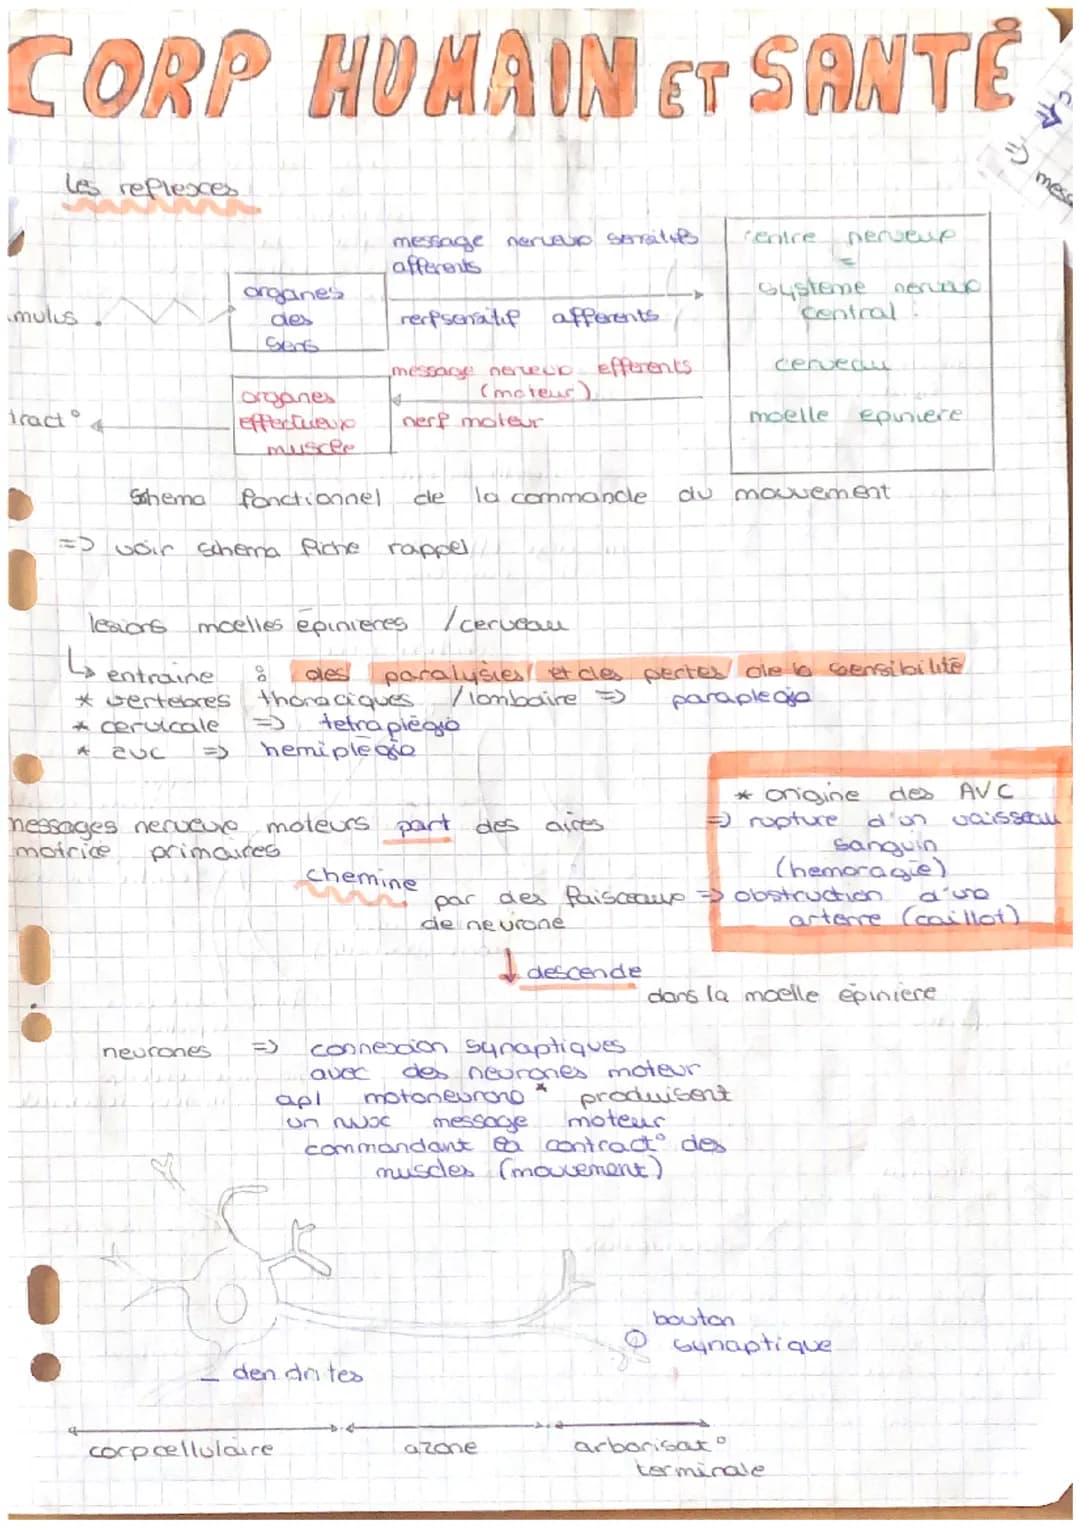 CORP HUMAIN ET SANTÉ
mess
les reflexes
message nerveux sensitifs
afferents
centre nerveux
=
systeme nerveux
central :
cerveau
moelle epiniere
mulus
organes
des
sens
nerf sensitif afferents
message nerveux efferents
(moteur)
nerf moteur
organes
effectueux
muscle
tract°
Schema fonctionnel de la commande du mouvement
=> voir schema fiche rappel
lesions moelles épinieres / cerveau
↳ entraine : des paralysies et des pertes de la sensibilité
* vertebres thoraciques / lombaire => paraplegie
* cervicale => tetraplégie
* avc => hemiplégie
* origine des AVC
=> rupture d'un vaisseau
sanguin
(hemoragie)
=> obstruction d'une
arterre (caillot)
messages nerveux moteurs part des aires
motrice primaires
chemine
par des faisceaux
de neurone
↓ descende
dans la moelle épiniere
neurones => connexion synaptiques
avec des neurones moteur
apl motoneurone * produisent
un nvx message moteur
commandant la contract° des
muscles (mouvement)
bouton
synaptique
dendrites
corpcellulaire
axone
arborisat°
terminale